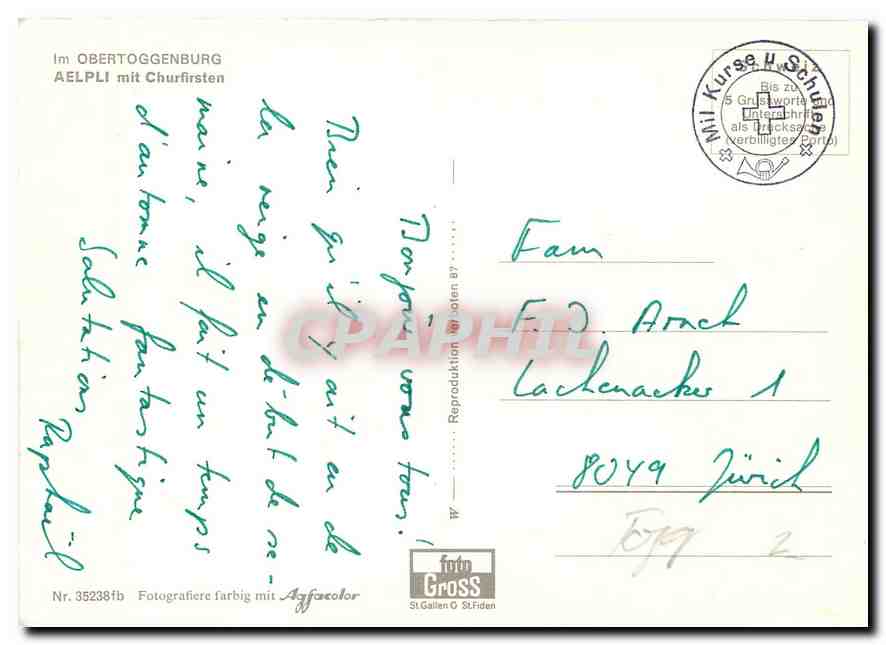 Im OBERTOGGENBURG
AELPLI mit Churfirsten
Bonjour vous tous!
Bien qu'il y ait eu de
la neige en début de se-
maine, il fait un temps
d'automne fantastique
Salutations
Raphaël
Schweiz
Bis zu
5 Grussworte und
Unterschrift
als Drucksache
(verbilligtes Porto)
Mil Kurse u Schulen
W
Reproduktion verboten 87
CPAPHIL
Fam
F. J. Arnet
Lachenacker 1
8049 Zürich
Togg 2
Nr. 35238fb Fotografiere farbig mit Agfacolor
foto
Gross
St.Gallen O St.Fiden